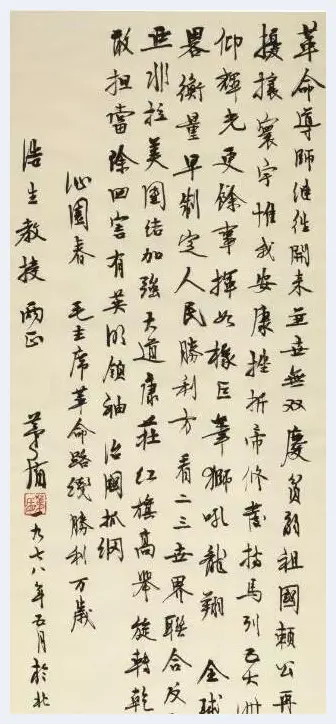 革命導師继往開来並世無双慶貧弱祖國賴公再
擾攘寰宇惟我安康挫折帝修高持馬列五大洲
仰輝光更餘事揮如椽巨筆獅吼龍翔 全球
畧衡量早制定人民勝利方 看二三世界聯合反
亚非拉美團结加強大道康莊红旗高舉旋轉乾
敢担當除四害有英明领袖治國抓纲
沁園春 毛主席革命路线勝利万歲
浩生教授 两正 茅盾 一九七八年五月於北